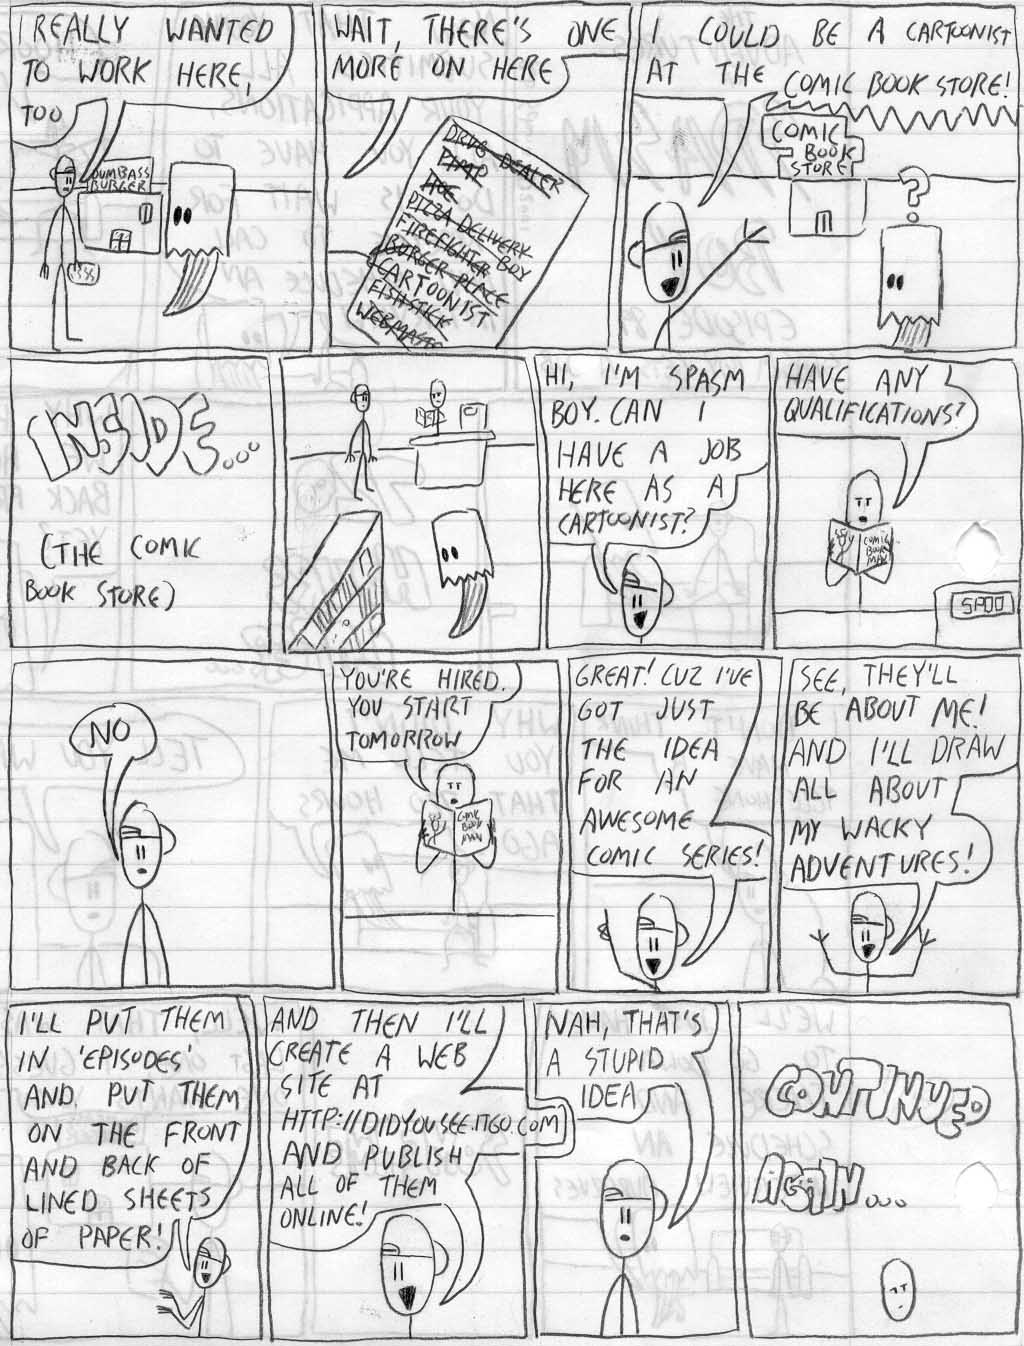 I REALLY WANTED
TO WORK HERE,
TOO
DUMBASS
BURGER
WAIT, THERE'S ONE
MORE ON HERE
DRUG DEALER
PIMP
HOE
PIZZA DELIVERY BOY
FIREFIGHTER
BURGER PLACE
CARTOONIST
FISHSTICK
WEBMASTER
I COULD BE A CARTOONIST
AT THE COMIC BOOK STORE!
COMIC
BOOK
STORE!
?
INSIDE...
(THE COMIC
BOOK STORE)
HI, I'M SPASM
BOY. CAN I
HAVE A JOB
HERE AS A
CARTOONIST?
HAVE ANY
QUALIFICATIONS?
COMIC
BOOK
MAN
SPOO
NO
YOU'RE HIRED.
YOU START
TOMORROW
COMIC
BOOK
MAN
GREAT! CUZ I'VE
GOT JUST
THE IDEA
FOR AN
AWESOME
COMIC SERIES!
SEE, THEY'LL
BE ABOUT ME!
AND I'LL DRAW
ALL ABOUT
MY WACKY
ADVENTURES!
I'LL PUT THEM
IN 'EPISODES'
AND PUT THEM
ON THE FRONT
AND BACK OF
LINED SHEETS
OF PAPER!
AND THEN I'LL
CREATE A WEB
SITE AT
HTTP://DIDYOUSEE.ITGO.COM
AND PUBLISH
ALL OF THEM
ONLINE!
NAH, THAT'S
A STUPID
IDEA
CONTINUED
AGAIN...